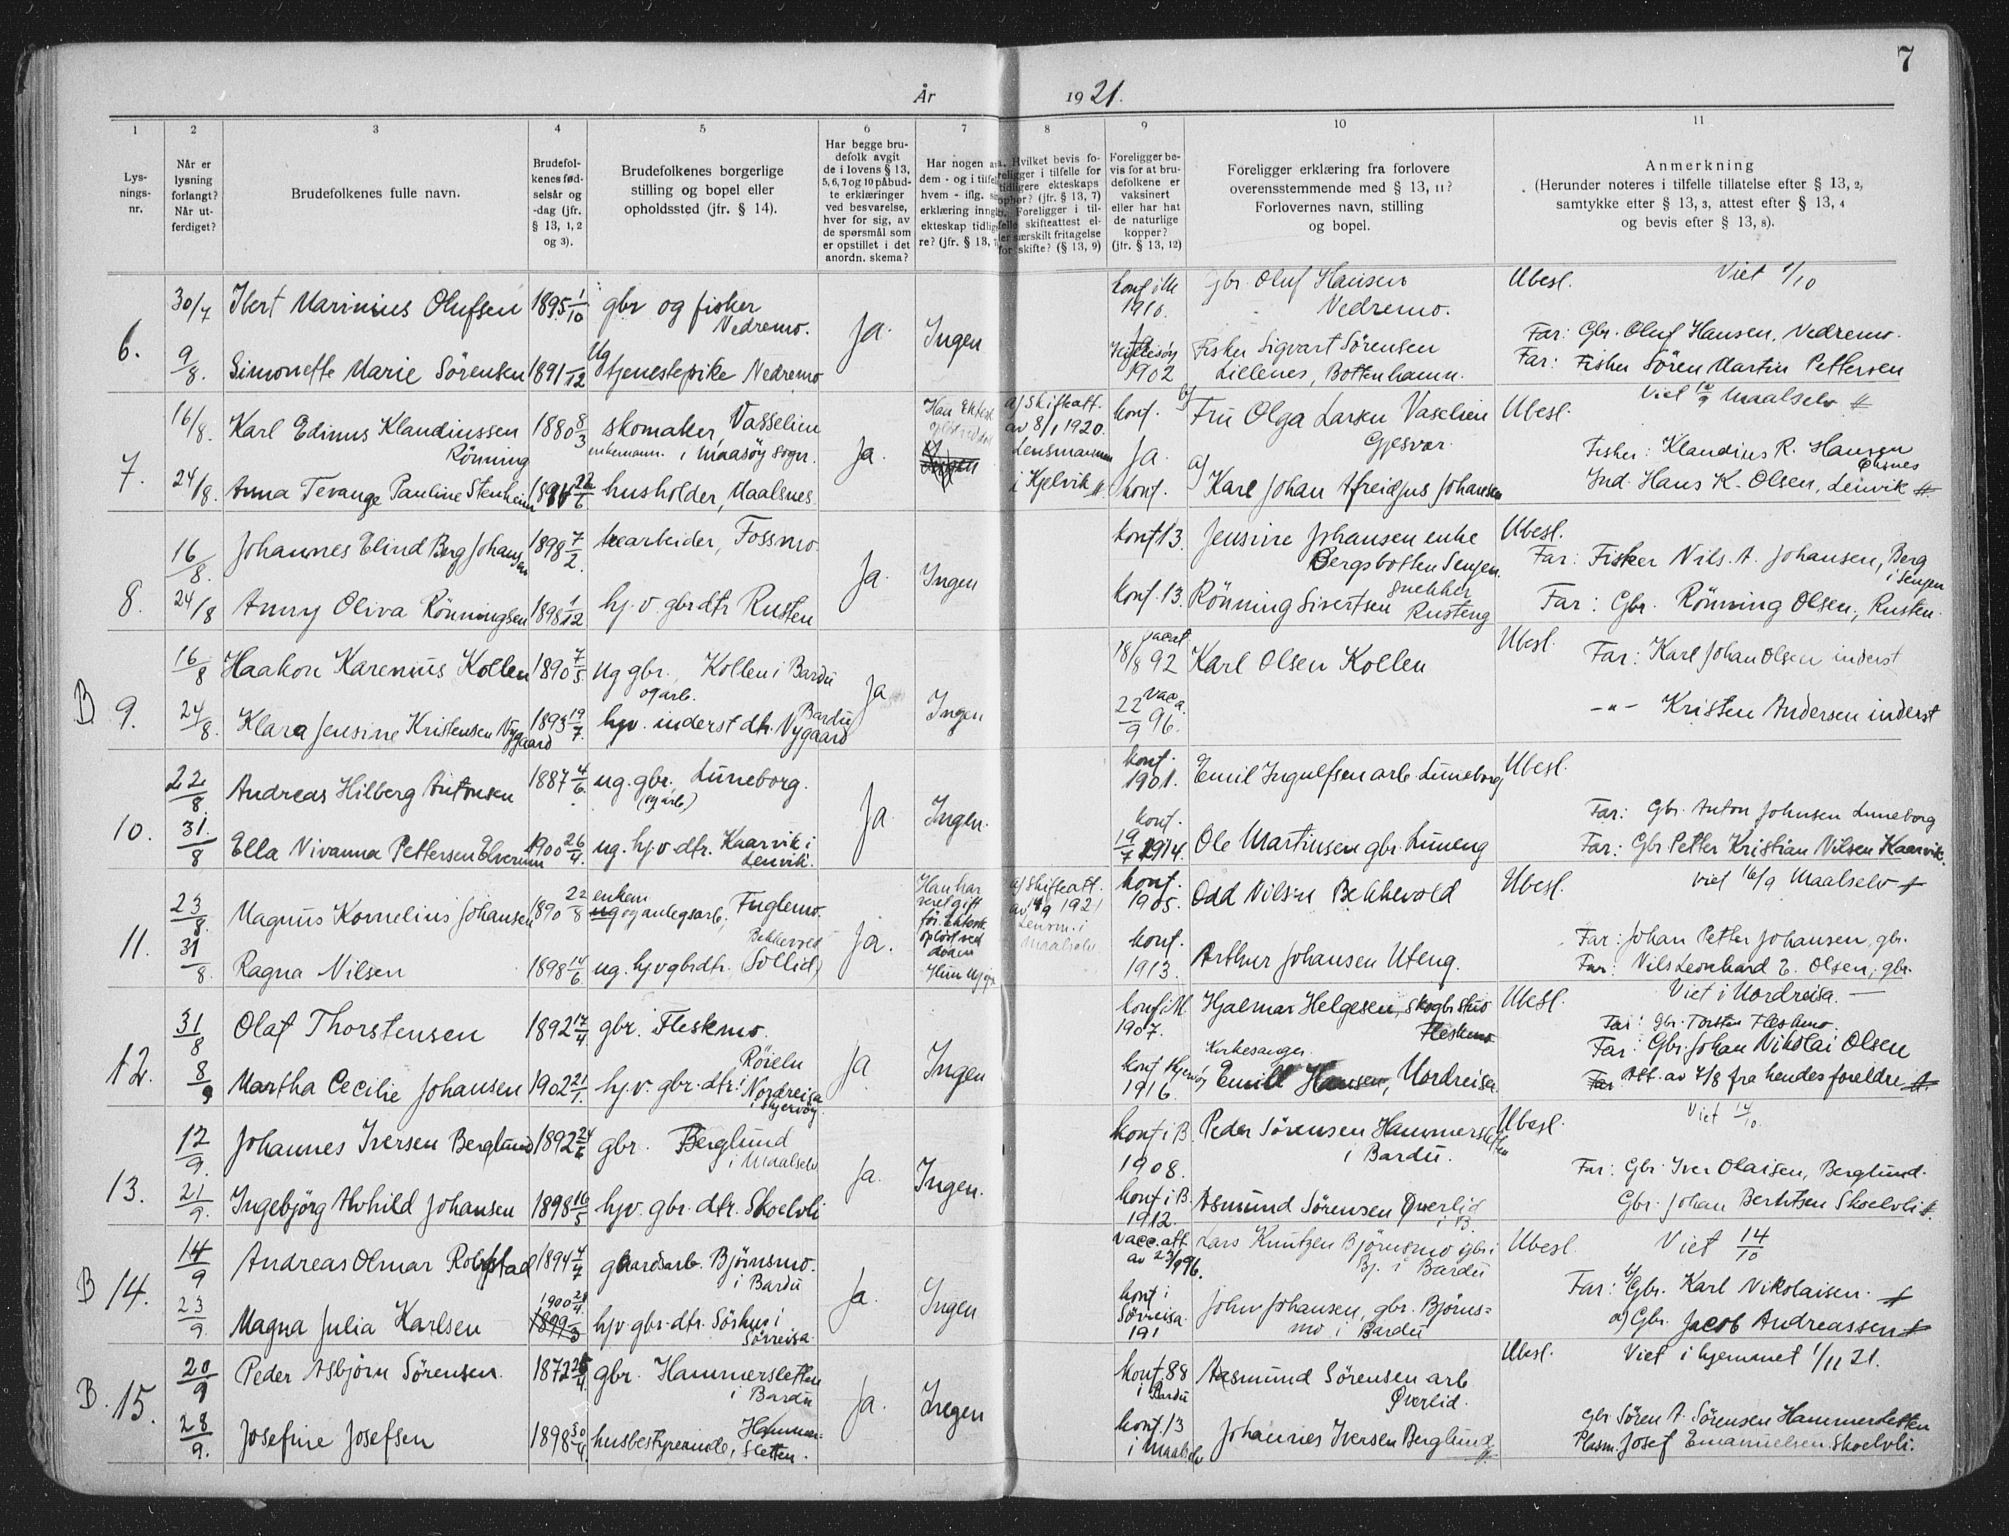 7
År 1921.
1 2 3 4 5 6 7 8 9 10 11
Lys-
nings-
nr.
Når er
lysning
forlangt?
Når ut-
ferdiget?
Brudefolkenes fulle navn.
Brudefol-
kenes fød-
selsår og
-dag (jfr.
§ 13, 1, 2
og 3).
Brudefolkenes borgerlige
stilling og bopel eller
opholdssted (jfr. § 14).
Har begge bru-
defolk avgit
de i lovens § 13,
5, 6, 7 og 10 påbud-
te erklæringer
ved besvarelse,
hver for sig, av
de spørsmål som
er opstillet i det
anordn. skema?
Har nogen av
dem - og i tilfel
hvem - iflg.
erklæring inng
ekteskap tidlig
re? (jfr. § 13,
Hvilket bevis fo-
religger i tilfelle for
tidligere ekteskaps
ophør? (jfr. § 13, 7)
Foreligger i til-
felle skifteattest el-
ler særskilt fritagelse
for skifte? (§ 13, 9)
Foreligger be-
vis for at bru-
defolkene er
vaksinert
eller har hat
de naturlige
kopper?
(jfr. § 13, 12)
Foreligger erklæring fra forlovere
overensstemmende med § 13, 11?
Forlovernes navn, stilling
og bopel.
Anmerkning
(Herunder noteres i tilfelle tillatelse efter § 13, 2,
samtykke efter § 13, 3, attest efter § 13, 4
og bevis efter § 13, 8).
6.
30/7 Ibert Marinius Olufsen 1895 1/10 gbr og fisker
Vedremo.
Ja. Ingen
konf i M
1910.
Gbr. Oluf Hansen
Vedremo.
Ubesl. Viet 1/10
Far: Gbr. Oluf Hansen, Vedremo.
9/8. Simonette Marie Sörensen 1891 /12 Ug
tjenestepike Vedremo
1902
Fisker Sigvart Sörensen
Lillenes, Bottenhamn.
Far: Fisker Sören Martin Pettersen
7.
16/8. Karl Edinus Klaudiussen
Rönning
1880 8/3 skomaker, Vasselien
enkemann. i Maasöy sogn.
Ja.
Ingen
a) Skifteatt.
av 8/1 1920.
Lensmannen
i Kjelvik
konf.
Ja.
konf.
b) Fru Olga Larsen Vaselien
Gjesvær
Ubesl.
Viet /9 Maalselv
Fisker: Klaudius R. Hansen
24/8. Anna Tevange Pauline Stenheim 22/6 husholder, Maalsnes.
a) Karl Johan Afreidjus Johansen
Ind. Hans K. Olsen, Lenvik
8.
16/8. Johannes Elind Berg Johansen 1898 7/2. arbeider, Fossmo.
Ja. Ingen
konf 13. Jensine Johansen enke
Bergsbotten Senjen.
Ubesl.
Far: Fisker Nils. A. Johansen, Berg
i Senjen
24/8 Anny Oliva Rönningsen 1898 1/12 hj. v. gbrdtr Rusten
Konf. 13. Rönning Sivertsen snekker
Rusteng
Far: Gbr. Rönning Olsen, Rusten.
B 9.
16/8 Haakon Karenius Kollen 1890 7/5. ug gbr. Kollen i Bardu
og arb.
Ja Ingen
vacat
18/8 92 Karl Olsen Kollen
Ubesl. Far: Karl Johan Olsen inderst
24/8. Klara Jensine Kristensen Nygaard 1893 19/7. hjv. inderst dtr. Nygaard
Bardu
22/9 96.
-"- Kristen Andersen inderst
10.
22/8 Andreas Hilberg Antonsen 1887 4/6. ug. gbr. Luneborg.
(og arb)
Ja Ingen.
konf.
1901. Emil Ingulfsen arb. Luneborg
Ubesl.
Far: Gbr. Anton Johnsen Luneborg
31/8 Ella Nivanna Pettersen Elverum 1900 26/4. ug. hj.v.dtr. Kaarvik i
Lenvik.
konf.
1914. Ole Martinsen gbr. Luneng
Far: Gbr Petter Kristian Nilsen Kaarvik.
11.
23/8. Magnus Kornelius Johansen 1890 22/8 enkem
ug og anlegsarb. Fuglemo.
Ja.
Han har
veret gift
för. Ektesk.
oplöst ved
döden
Hun
a) Skifteatt.
av /9 1921
Lensm. i
Maalselv
konf.
1905. Odd Nilsen Bekkevold
Ubesl. Viet 16/9 Maalselv
Far: Johan Petter Johansen, gbr.
31/8. Ragna Nilsen 1898 14/6 ug. hjv gbrdtr. Bekkevold
(Sollid)
konf.
1913. Arthur Johansen Uteng.
Far: Nils Leonhard E. Olsen, gbr.
12.
31/8 Olaf Thorstensen 1892 17/4 gbr. Fleskmo.
Ja Ingen
konf i M.
1907. Hjalmar Helgesen, skogbetj
Fleskmo
Ubesl. Viet i Nordreisa.
Far: Gbr. Torsten Fleskmo.
Far: Gbr. Johan Nikolai Olsen
8/9 Martha Cecilie Johansen 1902 21/1. hj.v. gbr. dtr. Röieln
Nordreisa
i Skjervöy
konf Skjervöy
1916.
Kirkesanger
Emil Hansen, Nordreisa
Att. av 4/8 fra hendes foreldre
13.
12/9. Johannes Iversen Berglund 1892 24/6 gbr. Berglund
i Maalselv
Ja. Ingen.
konf i B.
1908. Peder Sörensen Hammersletten
i Bardu.
Ubesl. Viet 14/10.
Far: Gbr. Iver Olaisen, Berglund.
21/9. Ingebjörg Alvhild Johansen 1898 16/5 hjv. gbr. dtr. Skoelvli
konf i B.
1912. Asmund Sörensen Överlid
i B.
Gbr. Johan Berntsen Skoelvli
B 14.
14/9 Andreas Olmar Robstad 1894 4/7 gaardsarb. Björnsmo.
i Bardu
Ja. Ingen
vacc.att
av 23/9 96. Lars Knutzen Björnsmo gbr i
Bj. i Bardu
Ubesl. Viet 14/10
Far: b) Gbr. Karl Nikolaisen.
23/9. Magna Julia Karlsen 1900 /4.
1899 /3 hjv. gbr. dtr. Sörhus i
Sörreisa.
konf i
Sörreisa
191 John Johansen, gbr. Björns=
mo i Bardu
a) Gbr. Jacob Andreassen
B. 15.
20/9 Peder Asbjörn Sörensen. 1872 /4. gbr. Hammersletten
i Bardu
Ja. Ingen
konf. 88
i Bardu Aasmund Sörensen arb
Överlid.
Ubesl. Viet i hjemmet 1/11 21.
Gbr. Sören A. Sörensen Hammersletten
28/9. Josefine Josefsen 1898 30/4. husbestyrerinde, Hammer-
sletten.
konf. 13
i Maalselv Johannes Iversen Berglund
Plasm. Josef Emanuelsen Skoelvli.